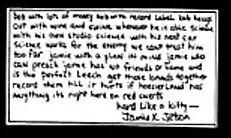 bob with lots of money bob with record label. bob keeps
out with wine and swine whenever he is able. Science
with his own studio science with his next car
science works for the enemy we can't trust him
too far jamie with a plan jamie who
can preach jamie has no friends or home and
is the perfect Leech get these bands together
record them till it hurts if hoosierland has
anything it's right here on red shorts
hard like a kitty —
Jamie X. Jetson